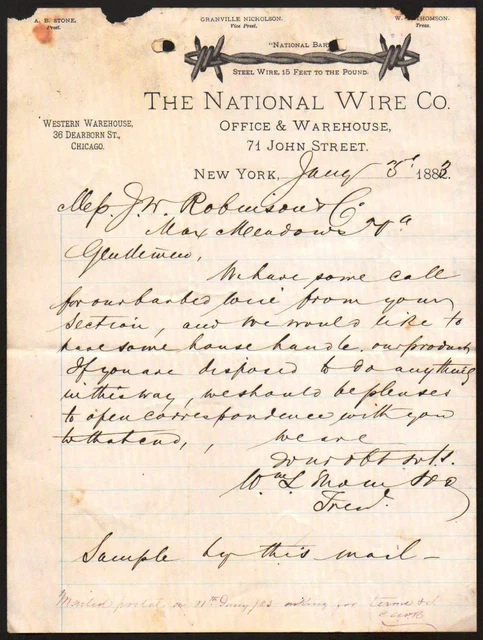 A. B. STONE,
Prest.
GRANVILLE NICHOLSON.
Vice Prest.
W. THOMSON.
Treas.
"NATIONAL BAR
STEEL WIRE, 15 FEET TO THE POUND.
THE NATIONAL WIRE CO.
WESTERN WAREHOUSE,
36 DEARBORN ST.,
CHICAGO.
OFFICE & WAREHOUSE,
71 JOHN STREET.
NEW YORK, Jany 3d 1883.
Mess J. W. Robinson & Co
Max Meadows Va
Gentlemen,
We have some call
for our barbed wire from your
section, and we would like to
have some house handle our products
If you are disposed to do anything
in this way, we should be pleased
to open correspondence with you
to that end,
We are
Your obt svts.
Wm L. Thomson
Treas.
Sample by this mail —
Mailed postal on 11th Jany /83 asking for terms &c